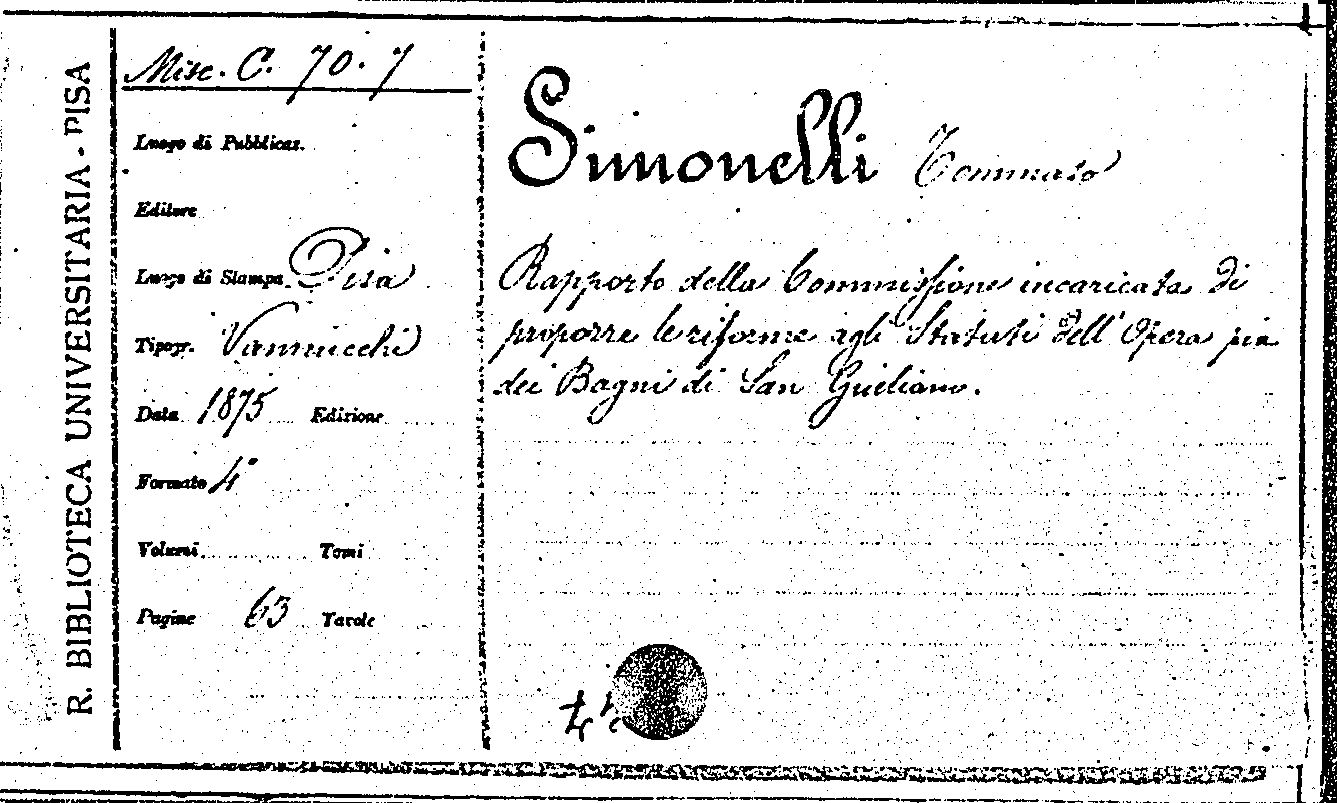 R. BIBLIOTECA UNIVERSITARIA - PISA
Misc. C. 70. 7
Luogo di Pubblicaz.
Editore
Luogo di Stampa Pisa
Tipogr. Vannucchi
Data 1875 Edizione
Formato 4°
Volumi Tomi
Pagine 63 Tavole
Simonelli Tommaso
Rapporto della Commissione incaricata di
proporre le riforme agli Statuti dell'Opera pia
dei Bagni di San Giuliano.